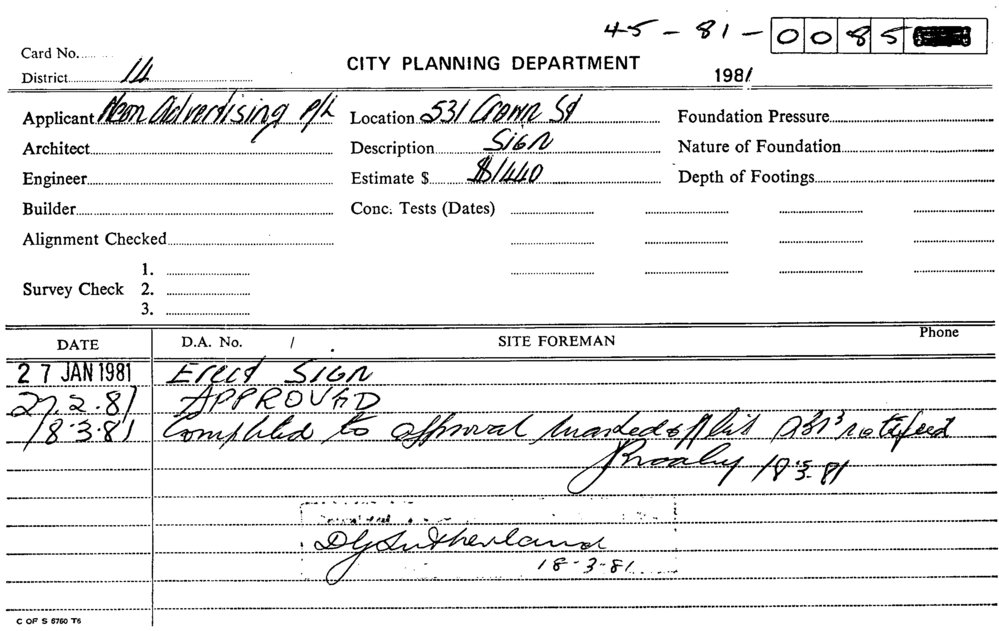 45-81-0085
Card No.
CITY PLANNING DEPARTMENT
District 14
1981
Applicant Neon Advertising P/L Location 531 Crown St Foundation Pressure
Architect Description Sign Nature of Foundation
Engineer Estimate $ $1440 Depth of Footings
Builder Conc. Tests (Dates)
Alignment Checked
1.
Survey Check 2.
3.
DATE D.A. No. / SITE FOREMAN Phone
27 JAN 1981 Erect SIGN
27.2.81 APPROVED
18.3.81 Completed to approval marked off list notified
18.3.81
DG Sutherland
18-3-81
C OF S 6760 T6